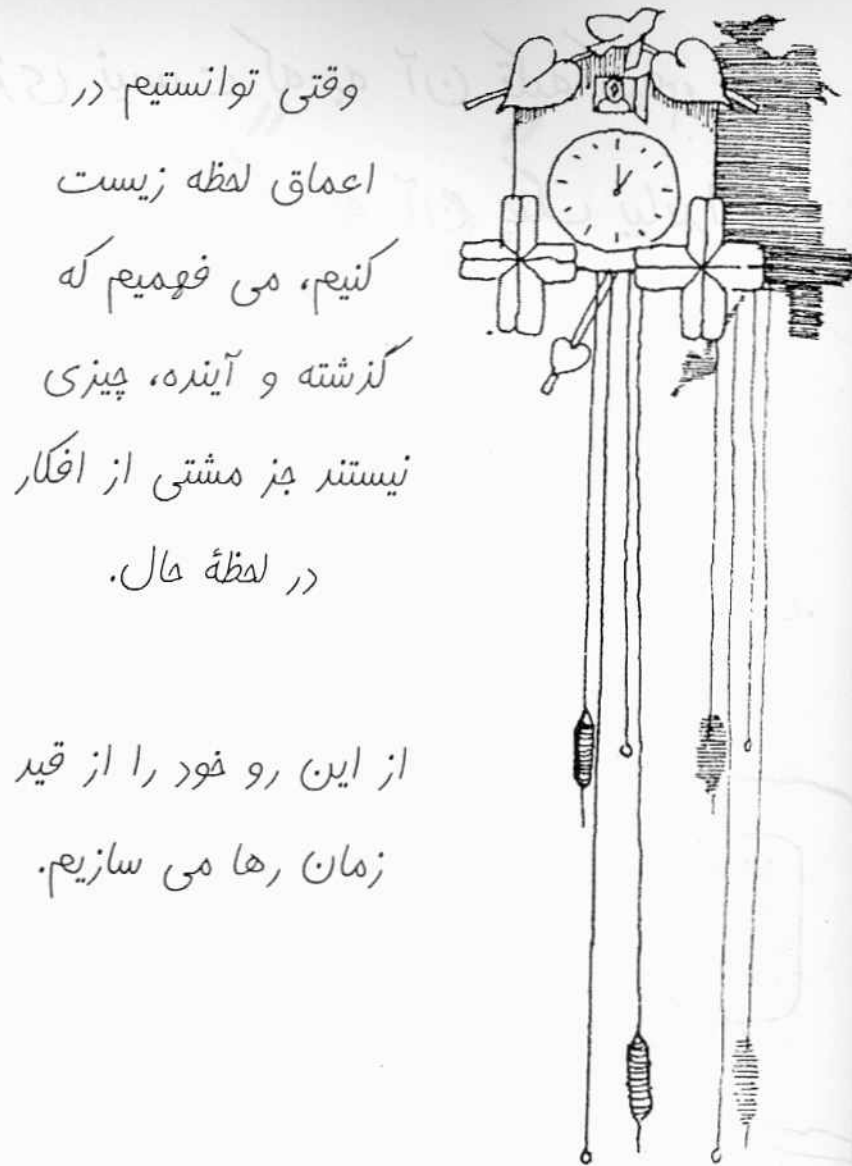 وقتی توانستیم در
اعماق لحظه زیست
کنیم، می فهمیم که
گذشته و آینده، چیزی
نیستند جز مشتی از افکار
در لحظهٔ حال.
از این رو خود را از قید
زمان رها می سازیم.